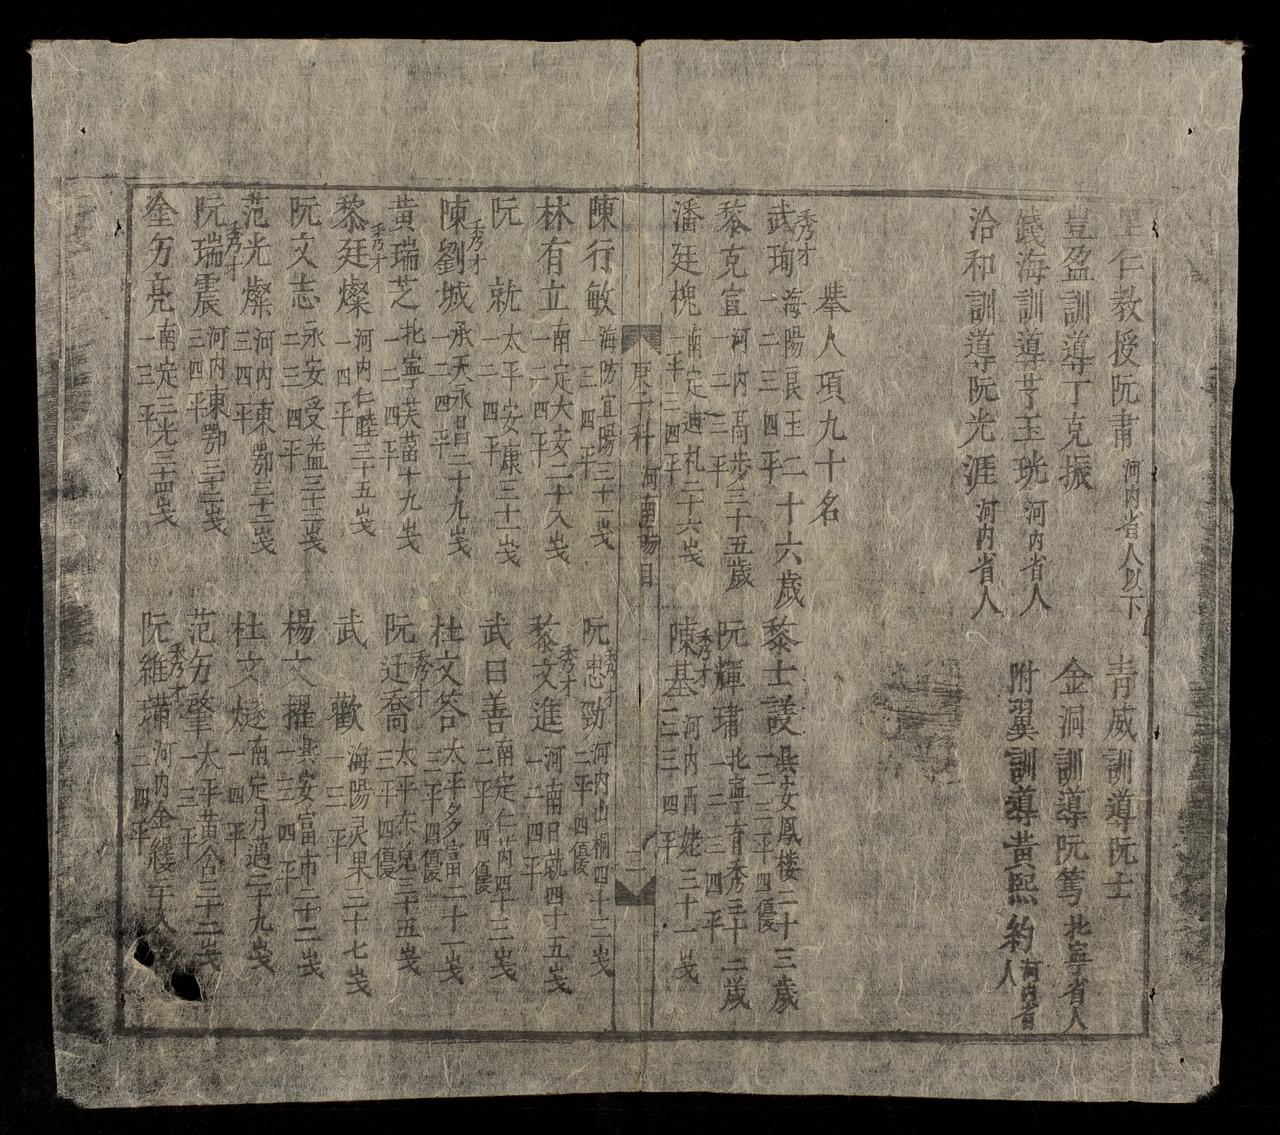 里仁教授阮肅 河内省人以下 青威訓導阮士
豊盈訓導丁克振 金洞訓導阮篤 北寧省人
錢海訓導芓玉珖 河内省人 附翼訓導黃熙約 河内省人
洽和訓導阮光涯 河内省人
擧人項九十名
秀才
武珣 海陽良玉二十六歲 一二三四平 黎士護 興安鳳楼二十三歲 一二三平四優
黎克宜 河内髙步三十五歲 一二三平 阮輝璛 北寧育秀三十二歲 一二三四平
潘廷槐 南定迪礼二十六歳 一平三四平 秀才 陳基 河内酉姥三十一歳 二三四平
庚子科 河南場目 三
陳行敏 海防宜陽三十一歳 一三四平 秀才 阮忠勁 河内山桐四十三歳 二平四優
林有立 南定大安二十八歳 一二四平 秀才 黎文進 河南日就四十五歳 一二四平
阮就 太平安康三十一歳 一二四平 武曰善 南定仁芮四十三歳 二平四優
秀才 陳劉城 承天永昌二十九歳 一二四平 杜文答 太平多富二十一歳 三平四優
黃瑞芝 北寧芙蒥十九歳 一二四平 秀才 阮迂喬 太平东兌三十五歳 三平四優
秀才 黎廷燦 河内仁睦三十五歳 一四平 武歡 海陽灵果三十七歳 三平
阮文志 永安受益三十三歳 二三四平 楊文擢 興安富市二十二歳 一二四平
范光燦 河内東鄂三十二歳 三四平 杜文燧 南定月邁二十九歳 一四平
秀才 阮瑞震 河内東鄂三十二歳 三四平 范夯肇 太平黃舍三十二歳 一三平
夯亮 南定三光三十四歳 一三平 秀才 阮維璛 河内金縷 二四平